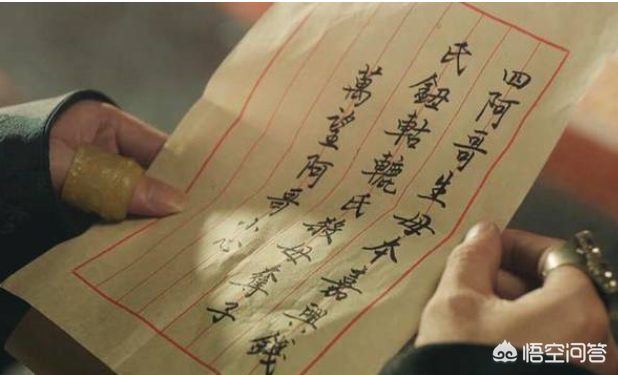 四阿哥生母本嘉興錢
氏鈕軲轆氏殺母奪子
萬望阿哥小心
悟空问答